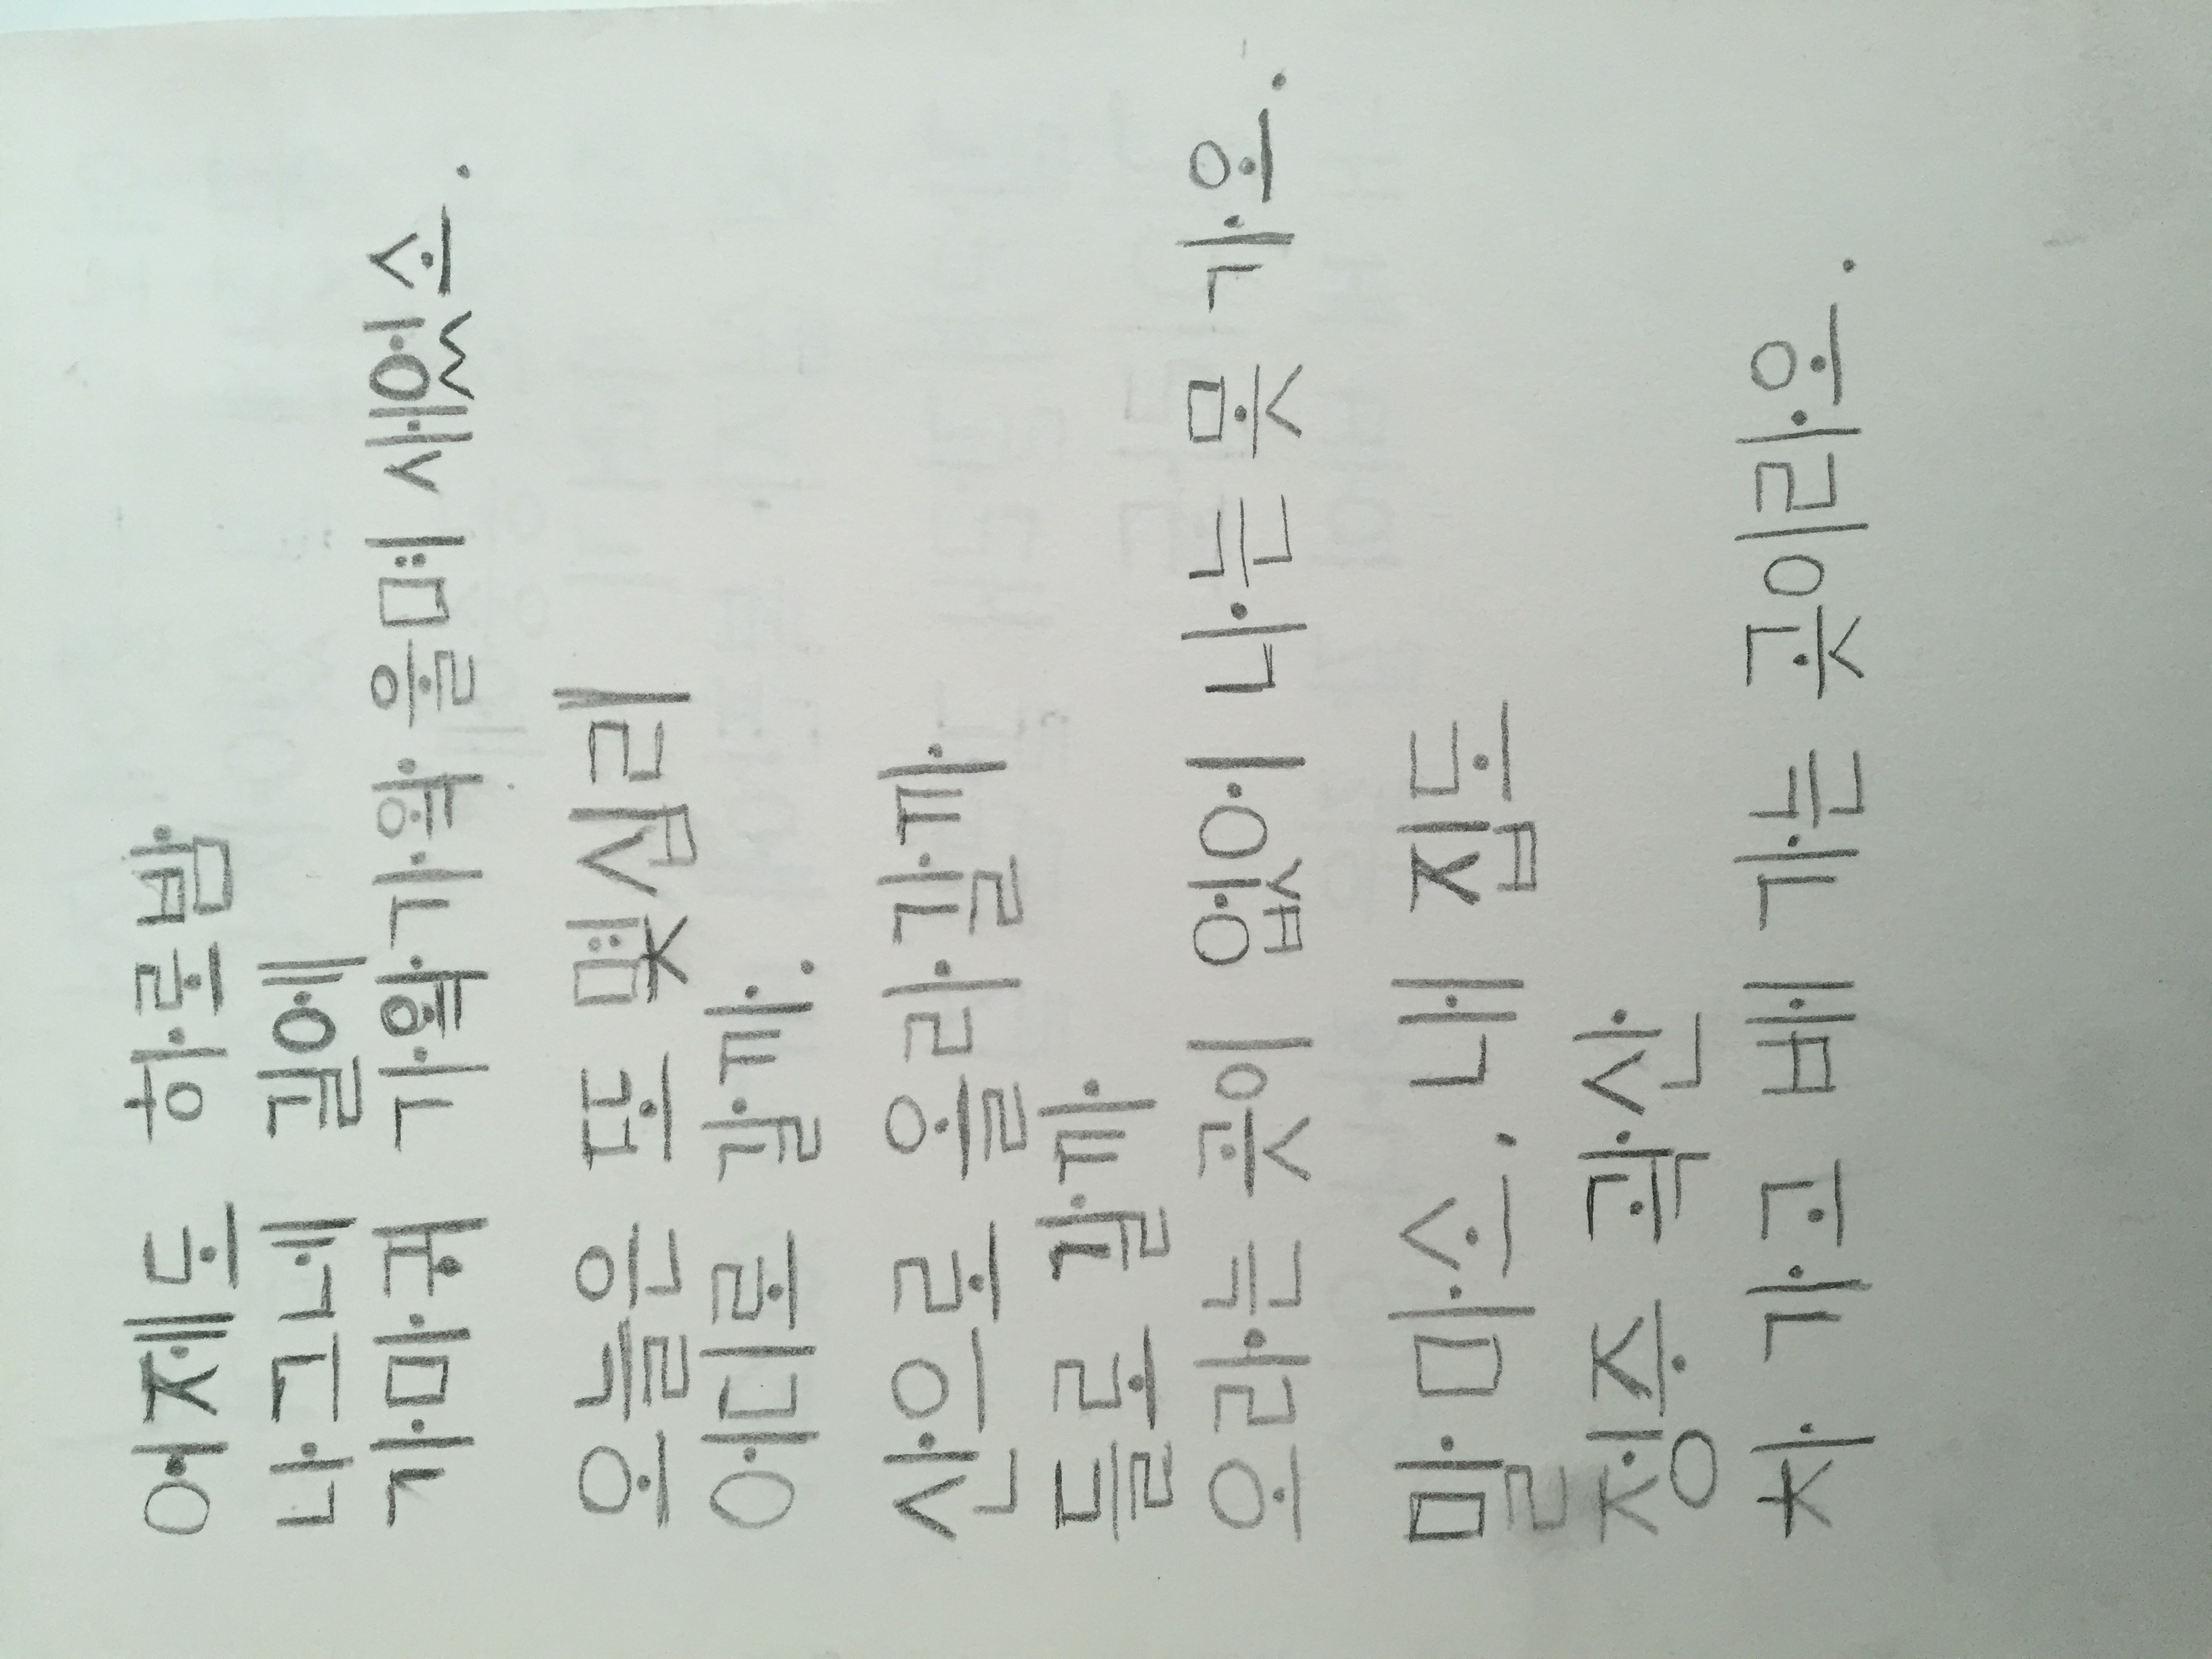 어제도 하로밤
나그네 길에
가마귀 가왁가왁 울며 새었소.
오늘은 또 몇십리
어디로 갈까.
산으로 올라갈까
들로 갈까
오라는 곳이 없어 나는 못 가오.
말 마소. 내 집도
정주 곽산
차 가고 배 가는 곳이라오.